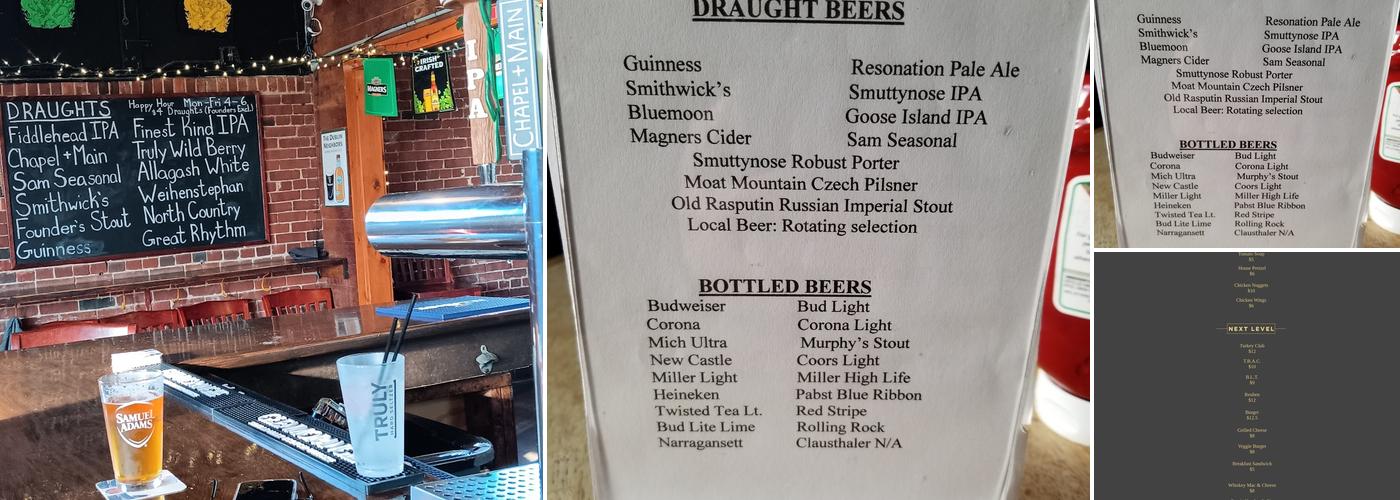 DRAUGHTS
Happy Hour Mon-Fri 4-6
$4 Draughts (Founders Excl.)
Fiddlehead IPA
Chapel + Main
Sam Seasonal
Smithwick's
Founder's Stout
Guinness
Finest Kind IPA
Truly Wild Berry
Allagash White
Weihenstephan
North Country
Great Rhythm
MAGNERS
IRISH CRAFTED
IPA
CHAPEL+MAIN
THE DUBLIN
NEIGHBORS
SAMUEL
ADAMS
TRULY
HARD SELTZER
DRAUGHT BEERS
Guinness Resonation Pale Ale
Smithwick's Smuttynose IPA
Bluemoon Goose Island IPA
Magners Cider Sam Seasonal
Smuttynose Robust Porter
Moat Mountain Czech Pilsner
Old Rasputin Russian Imperial Stout
Local Beer: Rotating selection
BOTTLED BEERS
Budweiser Bud Light
Corona Corona Light
Mich Ultra Murphy's Stout
New Castle Coors Light
Miller Light Miller High Life
Heineken Pabst Blue Ribbon
Twisted Tea Lt. Red Stripe
Bud Lite Lime Rolling Rock
Narragansett Clausthaler N/A
Guinness Resonation Pale Ale
Smithwick's Smuttynose IPA
Bluemoon Goose Island IPA
Magners Cider Sam Seasonal
Smuttynose Robust Porter
Moat Mountain Czech Pilsner
Old Rasputin Russian Imperial Stout
Local Beer: Rotating selection
BOTTLED BEERS
Budweiser Bud Light
Corona Corona Light
Mich Ultra Murphy's Stout
New Castle Coors Light
Miller Light Miller High Life
Heineken Pabst Blue Ribbon
Twisted Tea Lt. Red Stripe
Bud Lite Lime Rolling Rock
Narragansett Clausthaler N/A
Tomato Soup
$5
House Pretzel
$6
Chicken Nuggets
$10
Chicken Wings
$6
NEXT LEVEL
Turkey Club
$12
T.B.A.C.
$10
B.L.T.
$9
Reuben
$12
Burger
$12.5
Grilled Cheese
$8
Veggie Burger
$8
Breakfast Sandwich
$5
Whiskey Mac & Cheese
$8